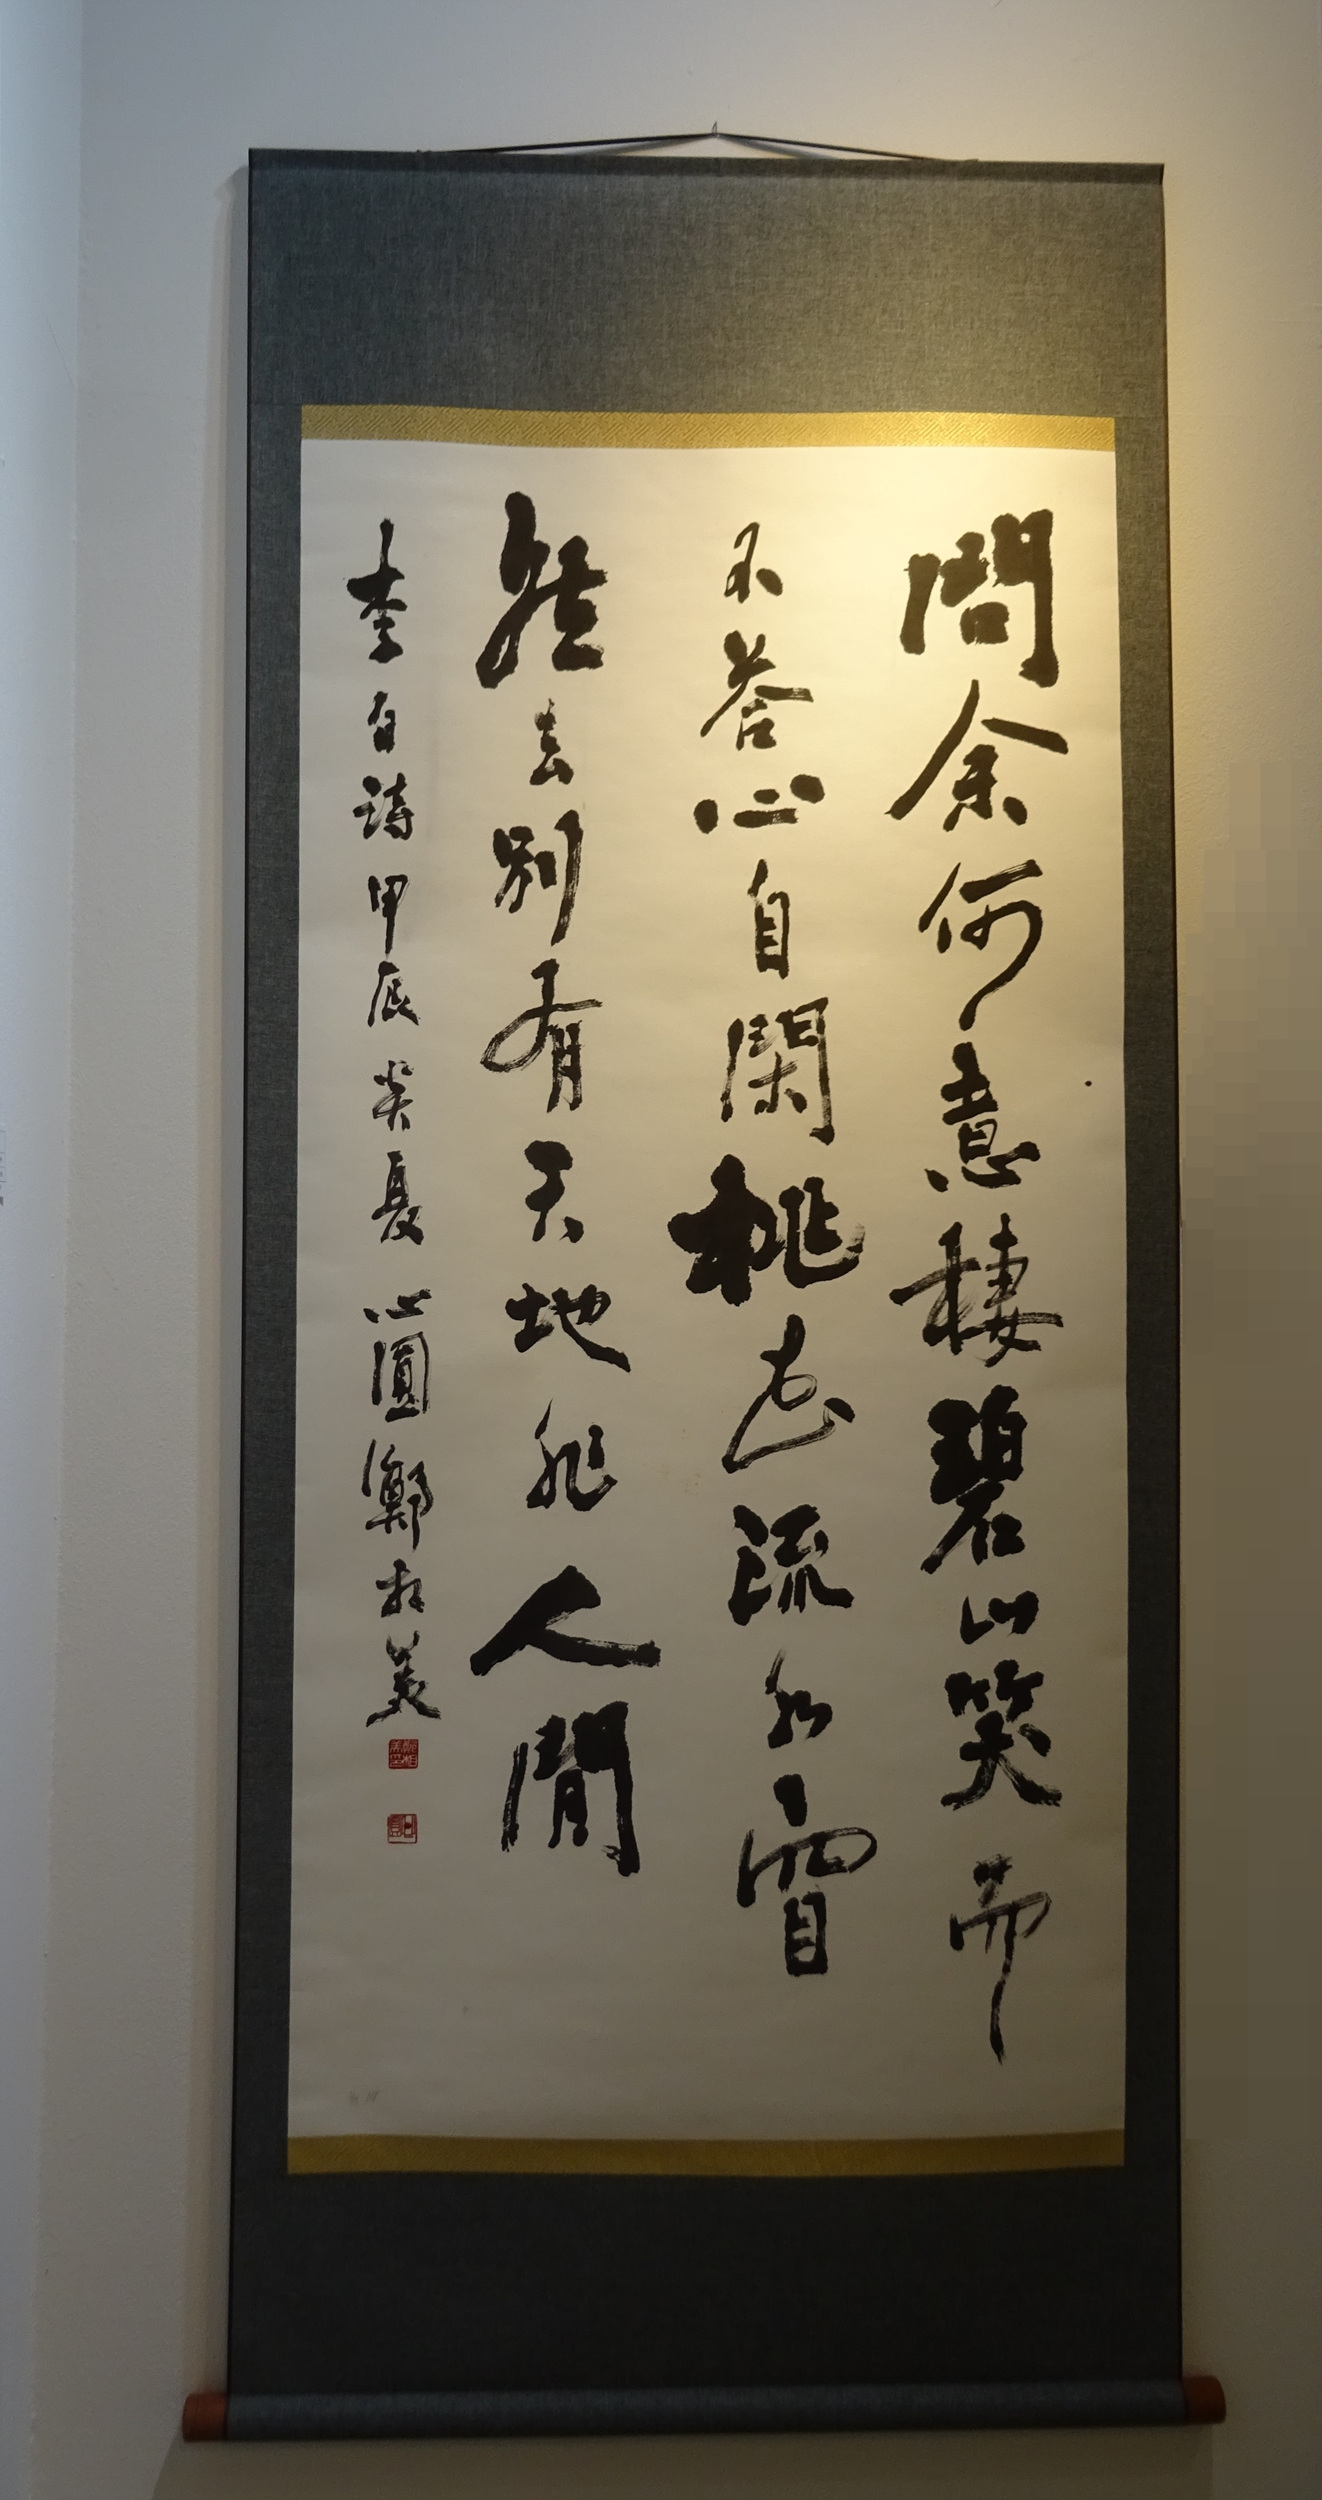 問余何意棲碧山笑而
不答心自閑桃花流水窅
然去別有天地非人間
李白詩 甲辰炎夏 心圓 鄭相美